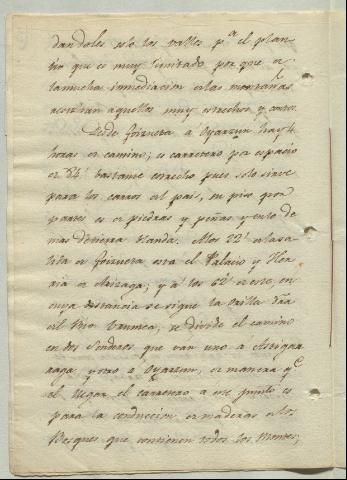 dandoles solo los valles p.a el plan-
tio que es muy limitado por que a
la mucha inmediacion de las montañas
acostran aquellos muy estrechos y cortos.
Desde Goizueta a Oyarzun hay 4
horas de camino; es carretero por espacio
de 54' bastante estrecho pues solo sirve
para los carros del país, su piso por
partes es de piedras y peñas, y en lo de
mas de tierra blanda. A los 22' de la sa-
lida de Goizueta esta el Palacio y Her
reria de Arizaga; y a los 52' de este, en
cuya distancia se sigue la orilla dra
del Rio Urumea, se divide el camino
en dos senderos que van uno a Astigar
raga y otro a Oyarzun, de manera q.e
el llegar el carretero a ese punto es
para la conduccion de maderas de los
Bosques que contienen todos los Montes;